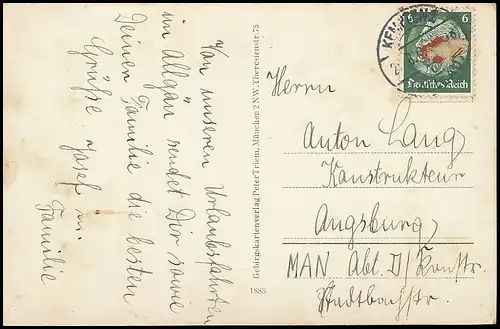 Von unseren Urlaubsfahrten
im Allgäu sendet Dir sowie
Deiner Familie die besten
Grüße Josef u.
Familie
Gebirgskartenverlag Peter Triem, München 2 NW, Theresienstr. 75
1885
6 6
Deutsches Reich
KEMPTEN
Herrn
Anton Lang
Konstrukteur
Augsburg
MAN Abt. D/Konstr.
Stadtbachstr.